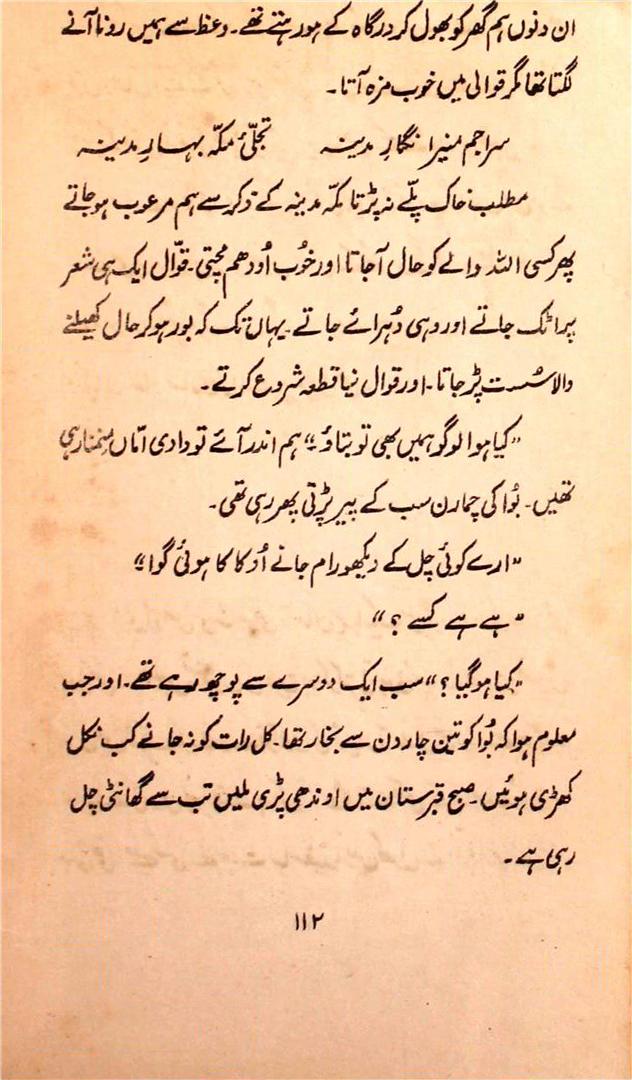 ان دنوں ہم گھر کو بھول کر درگاہ کے ہو رہتے تھے۔ وعظ سے ہمیں رونا آنے
لگتا تھا مگر قوالی میں خوب مزہ آتا۔
سراجم منیرا نگارِ مدینہ تجلّیٔ مکّہ بہارِ مدینہ
مطلب خاک پلّے نہ پڑتا مکّہ مدینہ کے ذکر سے ہم مرعوب ہو جاتے
پھر کسی اللہ والے کو حال آجاتا اور خُوب اُودھم مچتی۔ قوّال ایک ہی شعر
پر اٹک جاتے اور وہی دُہرائے جاتے۔ یہاں تک کہ بور ہو کر حال کھیلنے
والا سُست پڑ جاتا۔ اور قوال نیا قطعہ شروع کرتے۔
”کیا ہوا لوگو ہمیں بھی تو بتاؤ۔“ ہم اندر آئے تو دادی امّاں منمنا رہی
تھیں۔ بُوا کی چمارن سب کے پیر پڑتی پھر رہی تھی۔
”ارے کوئی چل کے دیکھو رام جانے اُو کا کا ہوئی گوا۔“
”ہے ہے کسے؟“
”کیا ہو گیا؟“ سب ایک دوسرے سے پوچھ رہے تھے۔ اور جب
معلوم ہوا کہ بُوا کو تین چار دن سے بخار تھا۔ کل رات کو نہ جانے کب نکل
کھڑی ہوئیں۔ صبح قبرستان میں اوندھی پڑی ملیں تب سے گھانٹی چل
رہی ہے۔
۱۱۲